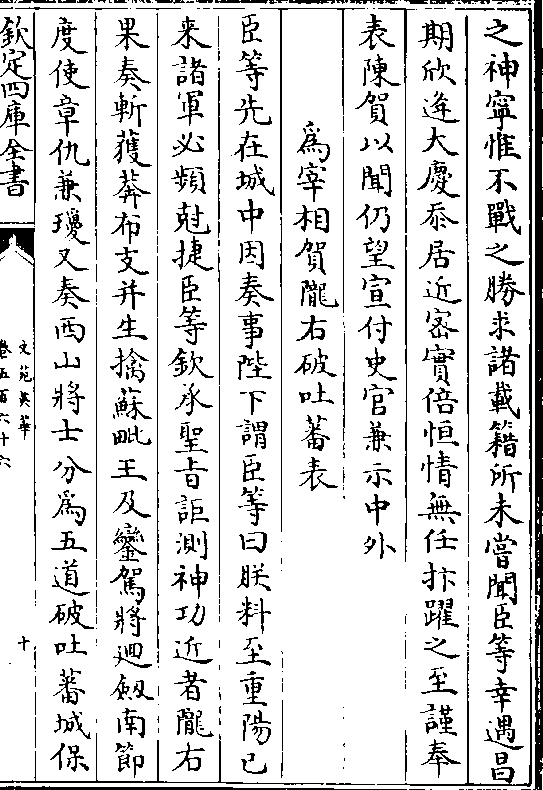 之神寧惟不戰之勝求諸載籍所未嘗聞臣等幸遇昌
期欣逢大慶忝居近宻實倍恒情無任抃躍之至謹奉
表陳賀以聞仍望宣付史官兼示中外
為宰相賀隴右破吐蕃表
臣等先在城中因奏事陛下謂臣等曰朕料至重陽已
来諸軍必頻尅捷臣等欽承聖㫖詎測神功近者隴右
果奏斬獲莽布支并生擒蘇毗王及鑾駕將廻劔南節
度使章仇兼瓊又奏西山將士分為五道破吐蕃城保
欽定四庫全書
文苑英華
卷五百六十六
十